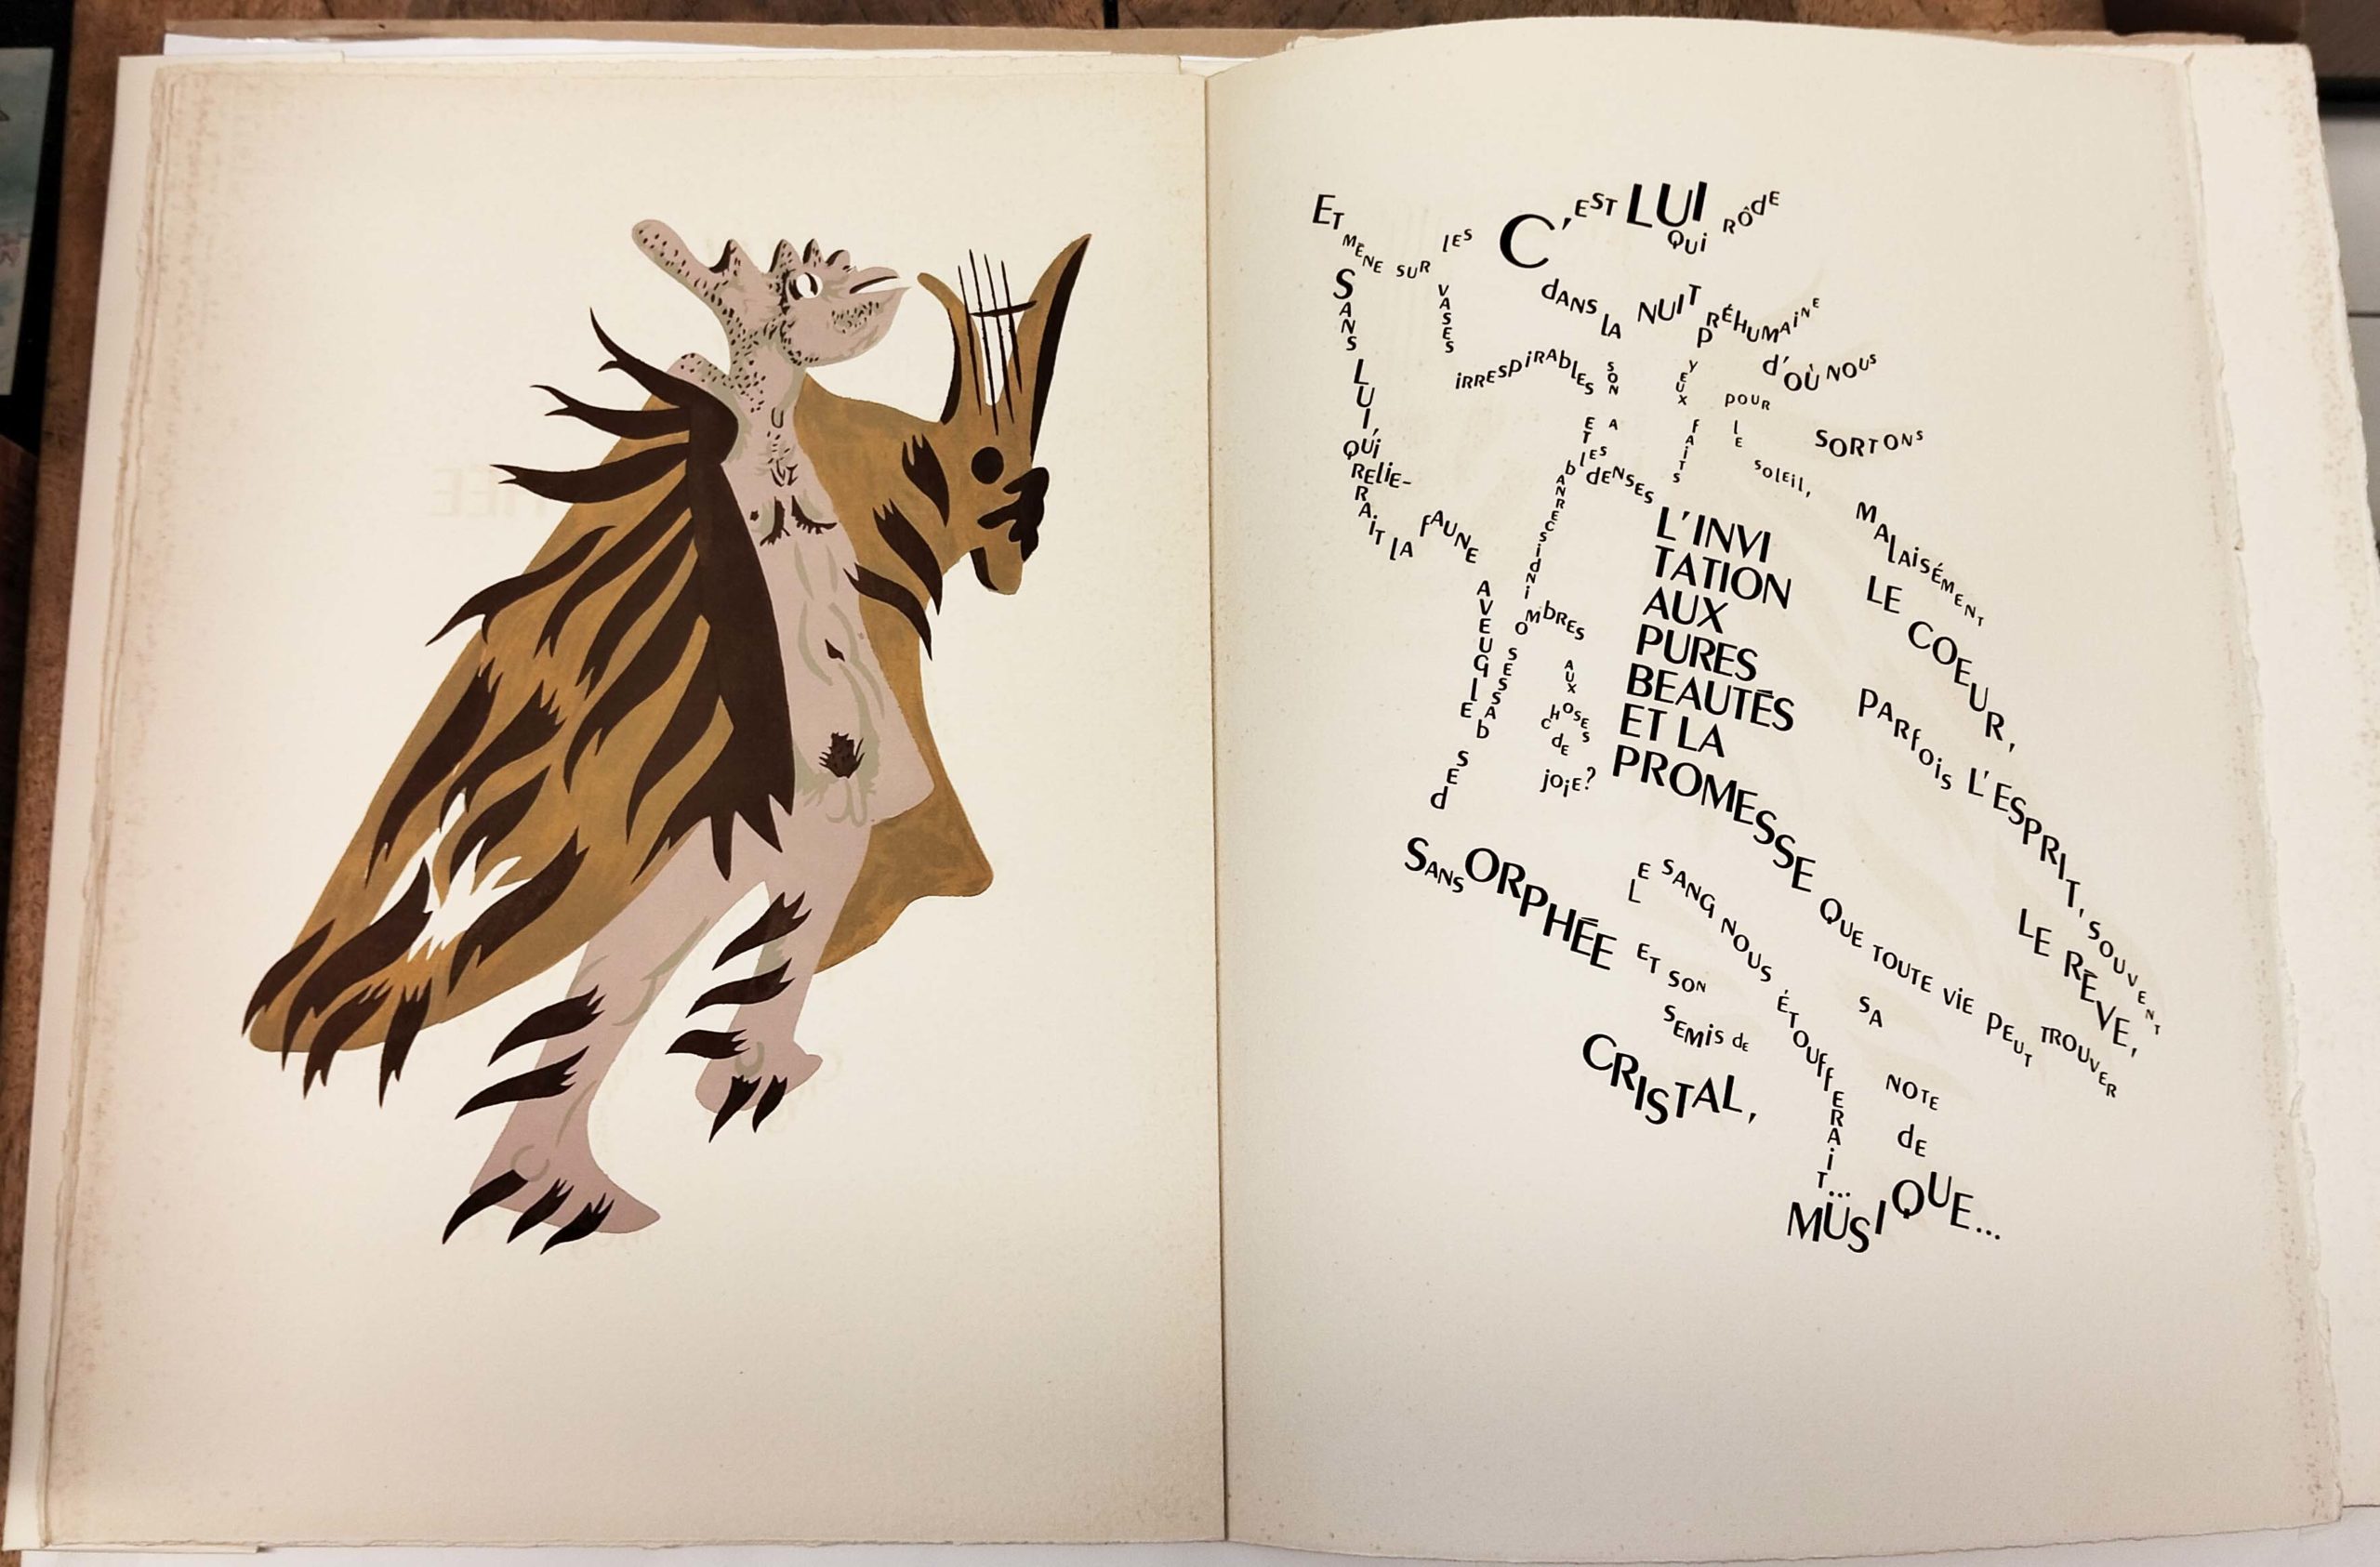 C'EST LUI
QUI RÔdE
dANS LA NUIT PRÉHUMAiNE
d'OÙ NOUS
SORTONS
MALAiSÉMENT
LE COEUR,
PARfOis L'ESPRIT, SOUVENT
LE RÊVE,
ET MÈNE SUR LES
VASES
iRRESPiRAbLES
SON
A
YEUX
fAiTS
POUR
LE
SOLEil,
SANS
LUI,
QUi
RELiE-
RAiT LA fAUNE
AVEUGlE
dES
bASSES
OMbRES
iNdiSCERNAblES
ET
dENSES
AUX
CHOSES
dE
jOiE?
L'INVI
TATION
AUX
PURES
BEAUTÉS
ET LA
PROMESSE QUE TOUTE ViE PEUT TROUVER
SANS ORPHÉE
ET SON
SEMiS dE
CRISTAL,
LE SANG NOUS ÉTOUffERAiT...
SA
NOTE
dE
MÜSIQUE...